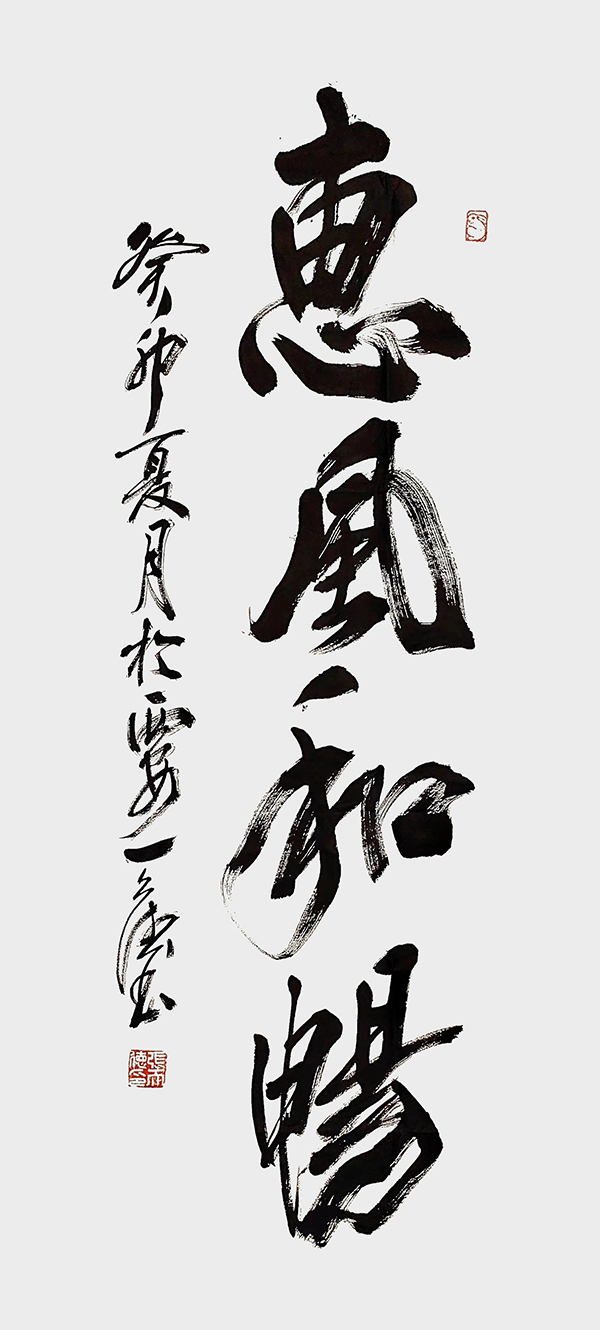 惠風和暢
癸卯夏月於西安一